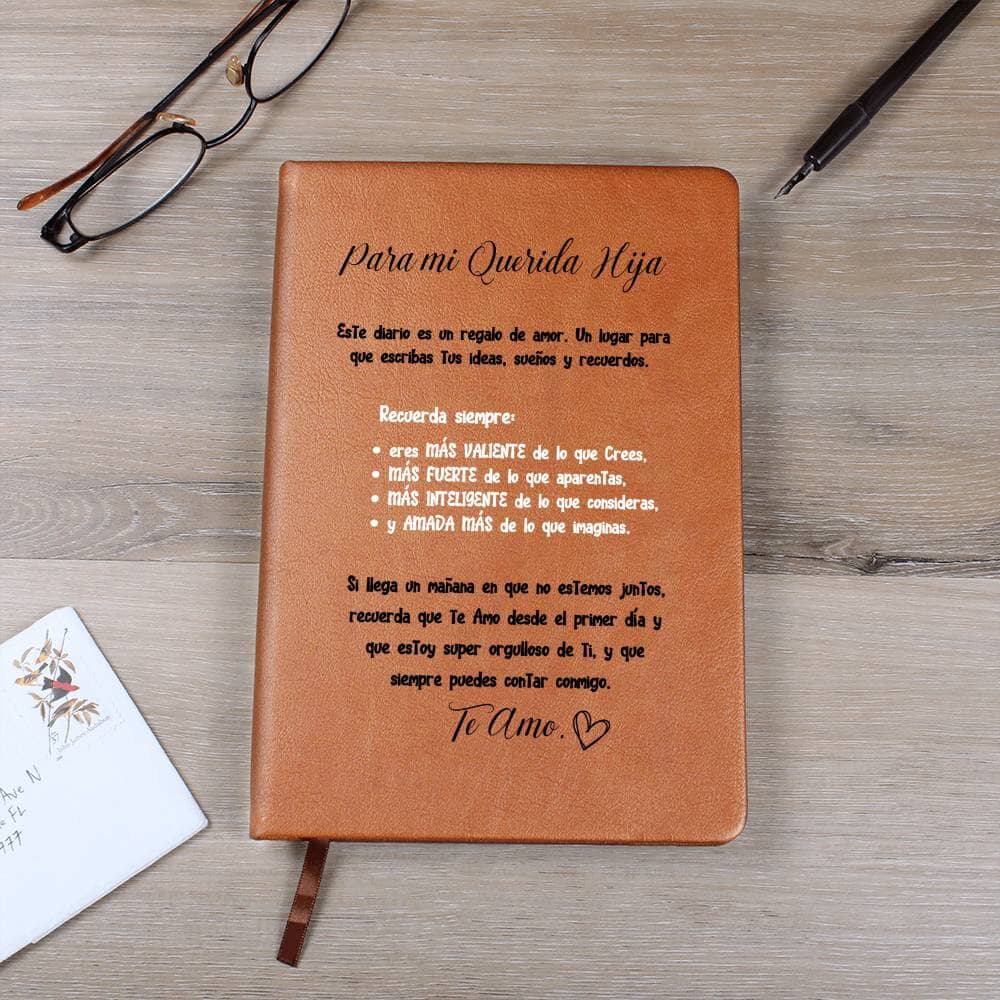 Para mi Querida Hija
Este diario es un regalo de amor. Un lugar para
que escribas Tus ideas, sueños y recuerdos.
Recuerda siempre:
• eres MÁS VALIENTE de lo que Crees,
• MÁS FUERTE de lo que aparentas,
• MÁS INTELIGENTE de lo que consideras,
• y AMADA MÁS de lo que imaginas.
Si llega un mañana en que no estemos juntos,
recuerda que Te Amo desde el primer día y
que estoy super orgulloso de Ti, y que
siempre puedes contar conmigo.
Te Amo.
John James Audubon
Ave N
FL
977